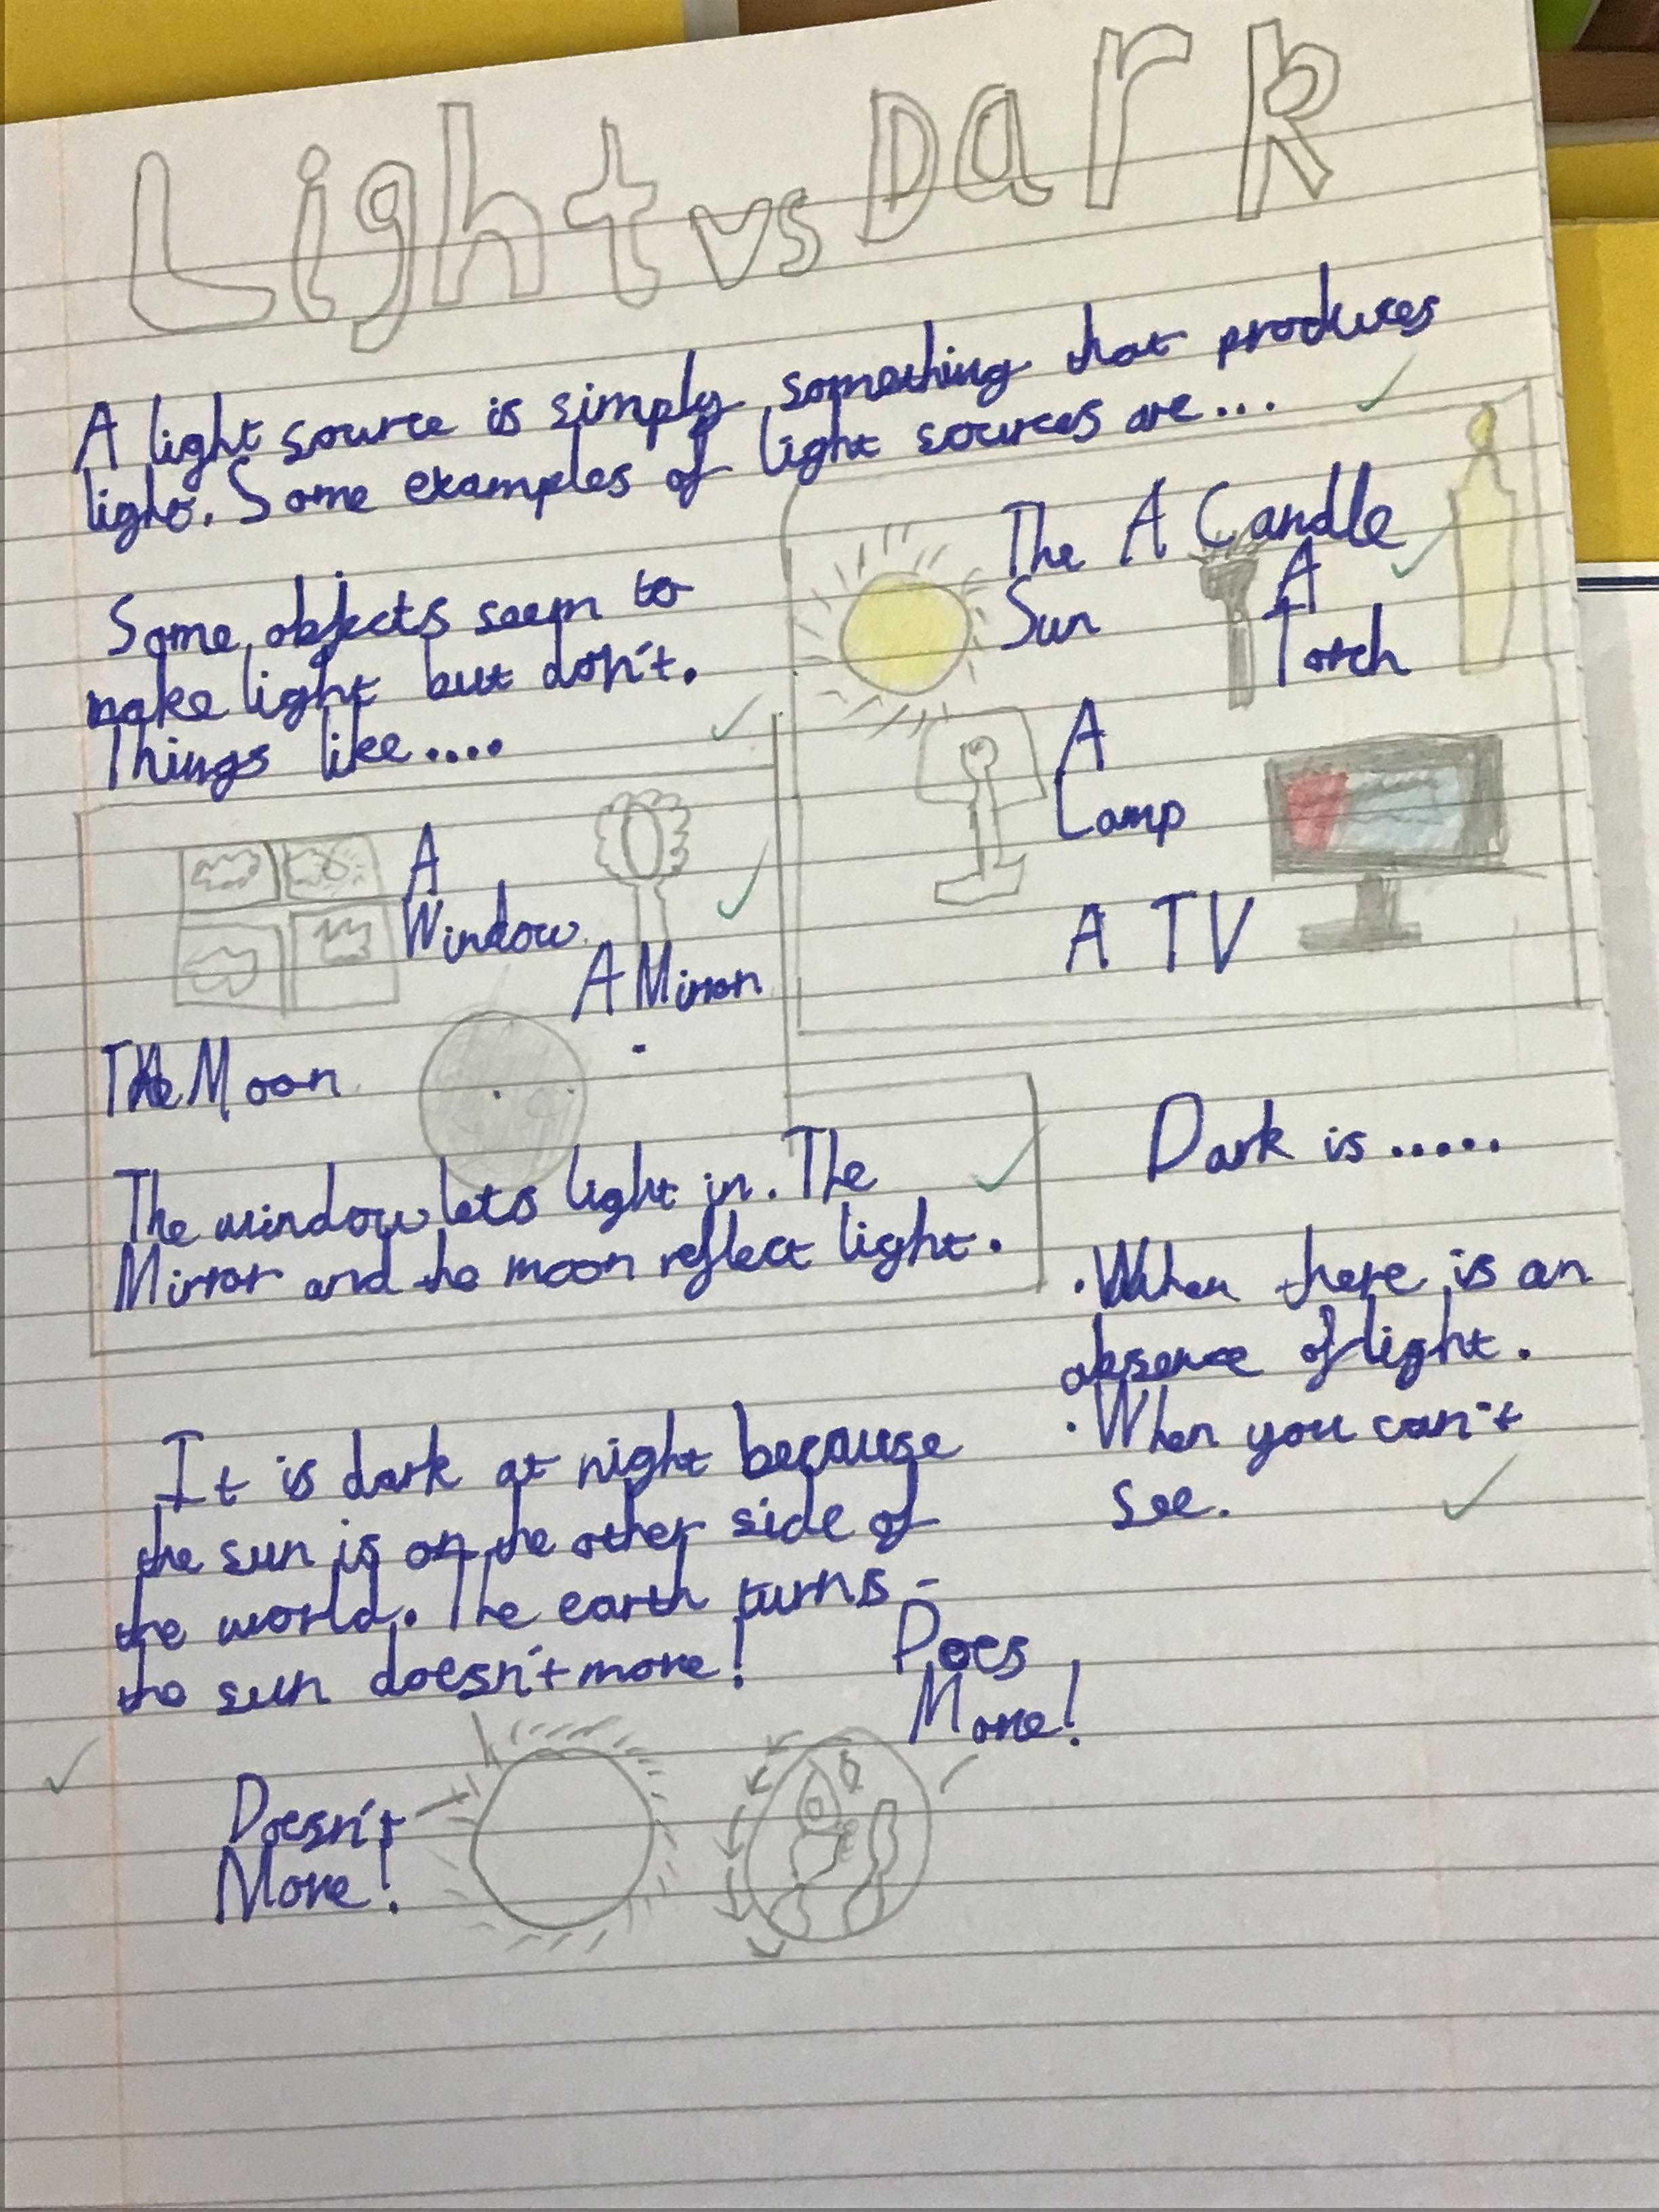 Light vs Dark
A light source is simply something that produces
light. Some examples of light sources are...
The
Sun
A Candle
A
Torch
A
Lamp
A TV
Some objects seem to
make light but don't.
Things like....
A
Window
A Mirror
The Moon
The window lets light in. The
Mirror and the moon reflect light.
Dark is.....
· When there is an
absence of light.
· When you can't
see.
It is dark at night because
the sun is on the other side of
the world. The earth turns -
the sun doesn't move!
Does
Move!
Doesn't
Move!